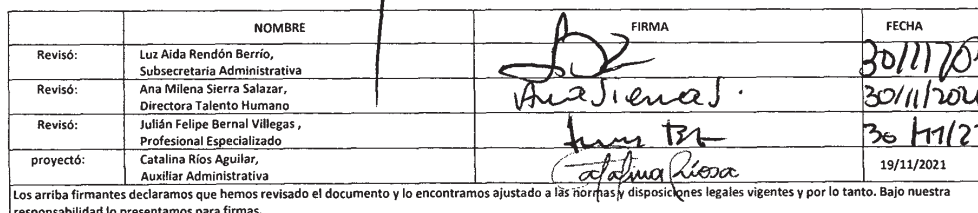 NOMBRE FIRMA FECHA
Revisó: Luz Aida Rendón Berrío,
Subsecretaria Administrativa
Revisó: Ana Milena Sierra Salazar,
Directora Talento Humano
AnaSierraS. 30/11/202
Revisó: Julián Felipe Bernal Villegas,
Profesional Especializado
30/11/2
proyectó: Catalina Ríos Aguilar,
Auxiliar Administrativa
Catalina Ríos 19/11/2021
Los arriba firmantes declaramos que hemos revisado el documento y lo encontramos ajustado a las normas y disposiciones legales vigentes y por lo tanto. Bajo nuestra
responsabilidad lo presentamos para firmas.